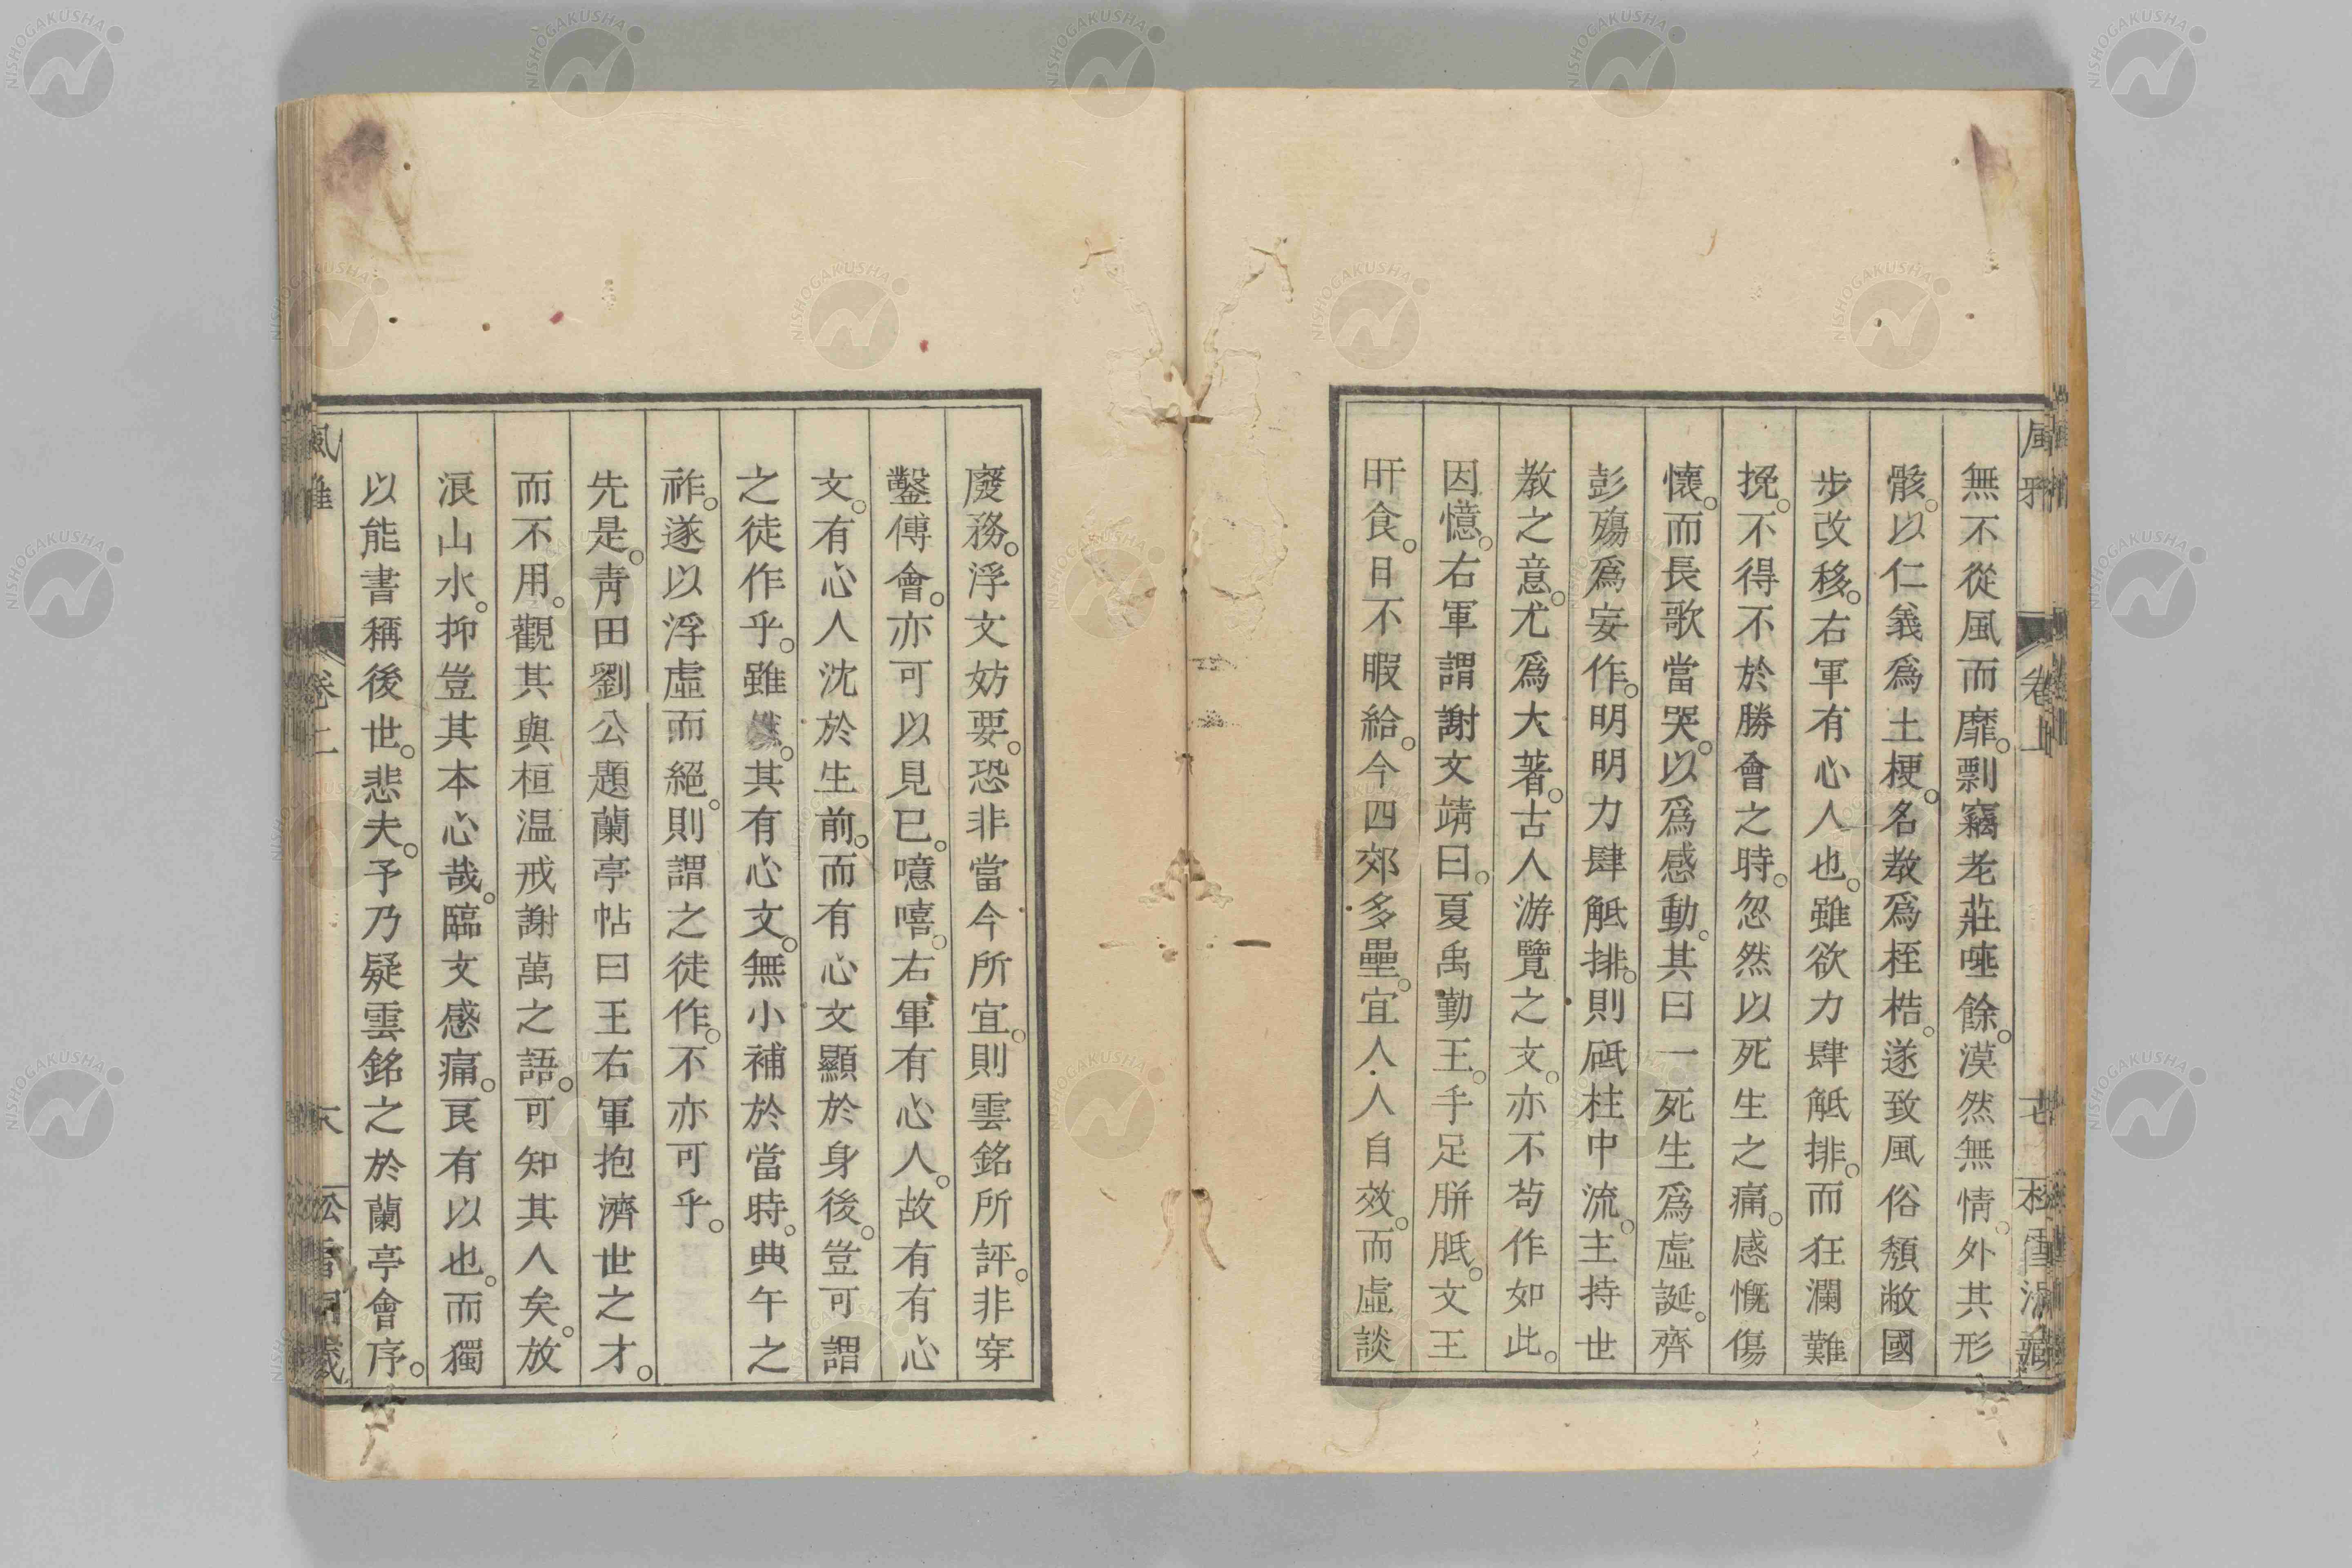 無不從風而靡。剽竊老莊唾餘。漠然無情。外其形
骸。以仁義爲土梗。名教爲桎梏。遂致風俗頹敝國
步改移。右軍有心人也。雖欲力肆觝排。而狂瀾難
挽。不得不於勝會之時。忽然以死生之痛。感慨傷
懷。而長歌當哭。以爲感動。其曰一死生爲虛誕。齊
彭殤爲妄作。明明力肆觝排。則砥柱中流。主持世
教之意。尤爲大著。古人游覽之文。亦不苟作如此。
因憶。右軍謂謝文靖曰。夏禹勤王。手足胼胝。文王
旰食。日不暇給。今四郊多壘。宜人人自效。而虛談
廢務。浮文妨要。恐非當今所宜。則雲銘所評。非穿
鑿傅會。亦可以見已。噫嘻。右軍有心人。故有有心
文。有心人沈於生前。而有心文顯於身後。豈可謂
之徒作乎。雖然。其有心文。無小補於當時。典午之
祚。遂以浮虛而絕。則謂之徒作。不亦可乎。
先是。靑田劉公題蘭亭帖曰王右軍抱濟世之才。
而不用。觀其與桓温戒謝萬之語。可知其人矣。放
浪山水。抑豈其本心哉。臨文感痛。良有以也。而獨
以能書稱後世。悲夫。予乃疑雲銘之於蘭亭會序。
卷二
NISHOGAKUSHA